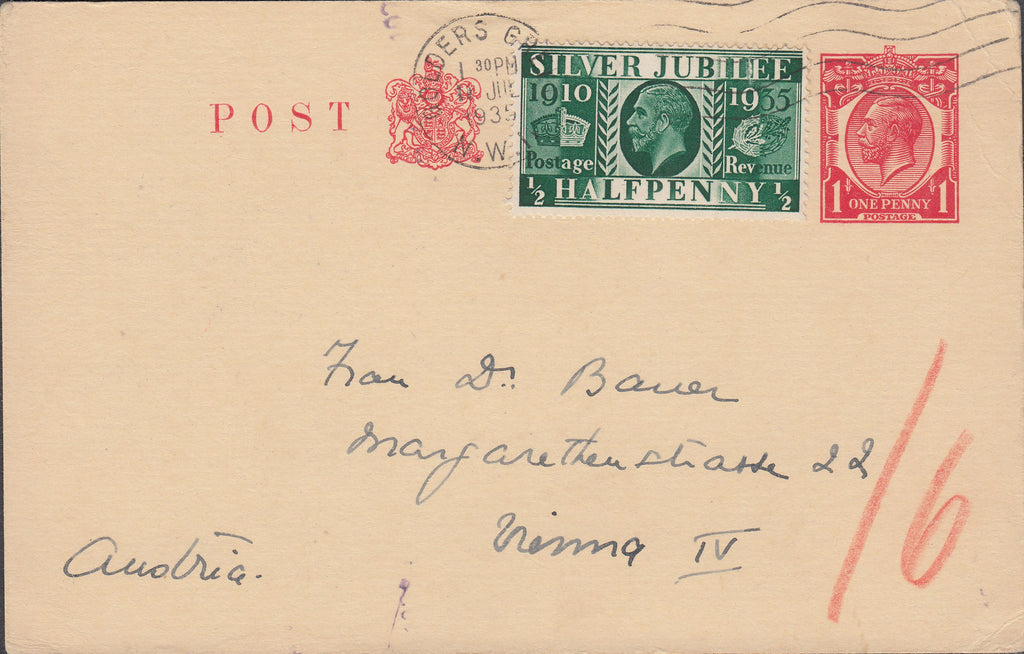 GOLDERS GR
1 30PM
JUL
1935
N.W.
POST
SILVER JUBILEE
1910 1935
Postage Revenue
½ HALFPENNY ½
1 ONE PENNY 1
POSTAGE
Frau Dr. Bauer
Margarethenstrasse 22
Vienna IV
Austria.
/6